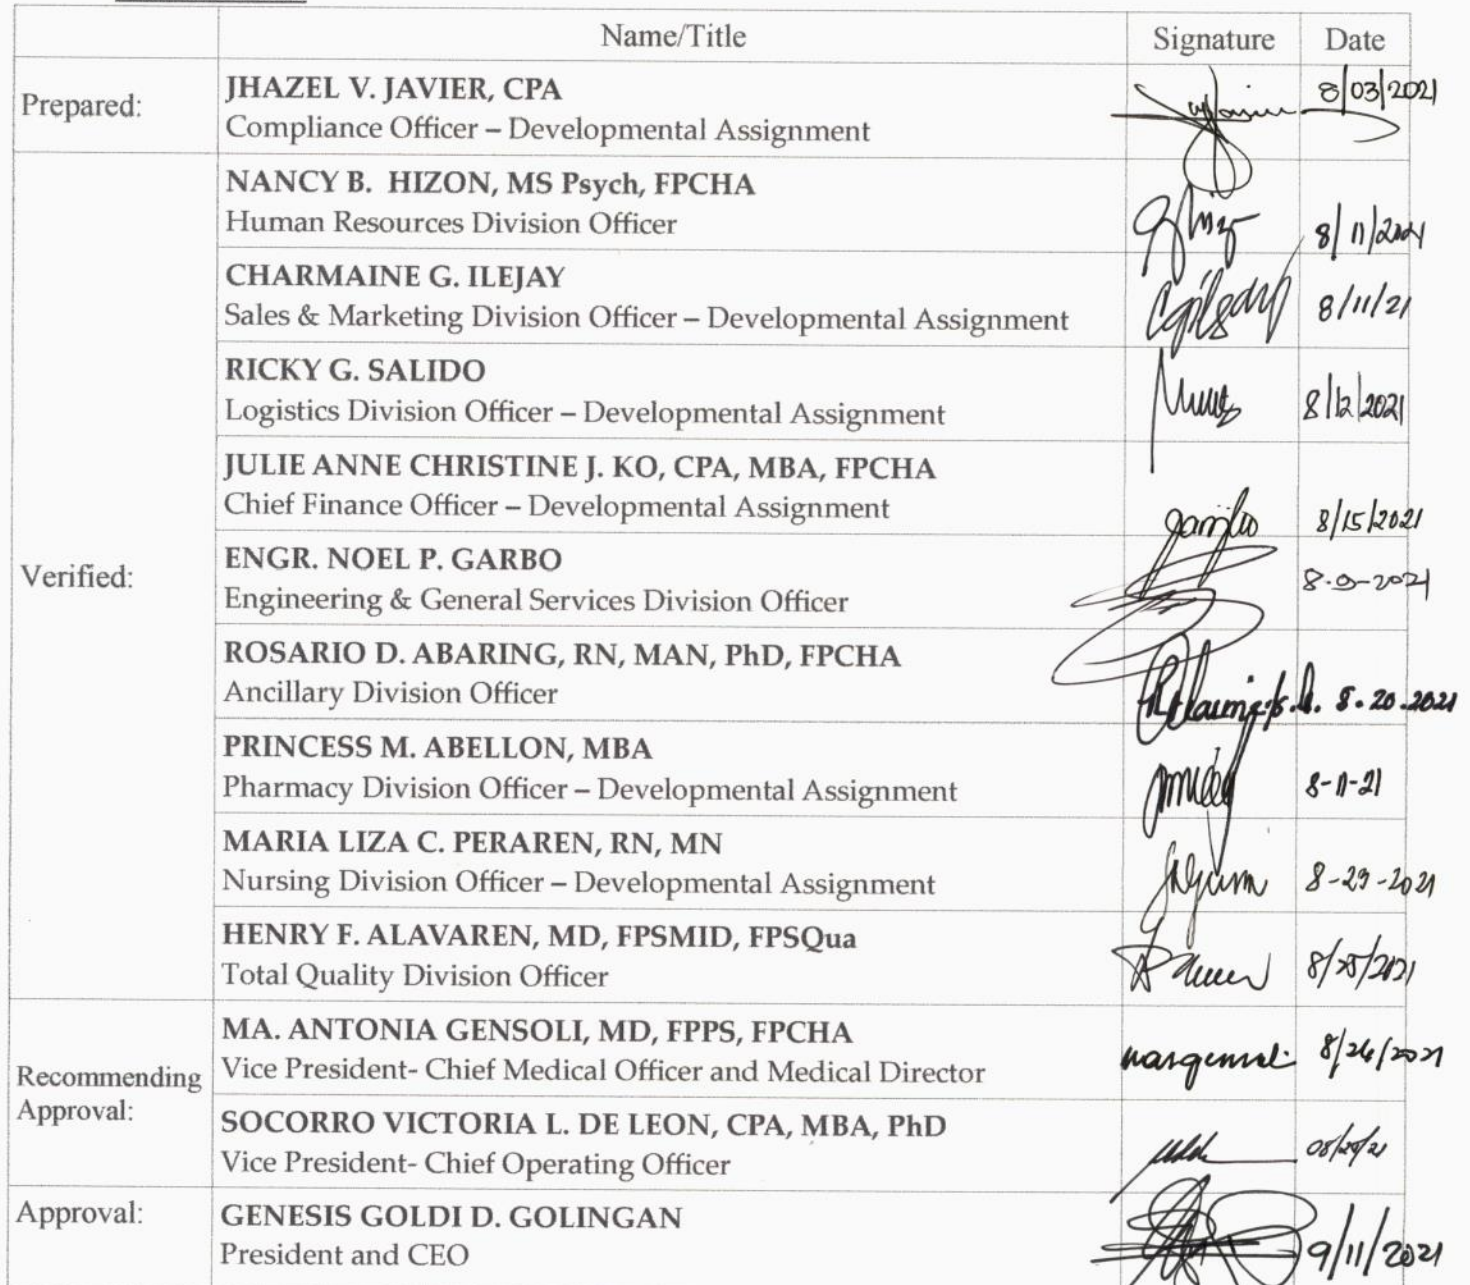 Name/Title Signature Date
Prepared: JHAZEL V. JAVIER, CPA 8/03/2021
Compliance Officer – Developmental Assignment
Verified: NANCY B. HIZON, MS Psych, FPCHA
Human Resources Division Officer 8/11/2021
CHARMAINE G. ILEJAY
Sales & Marketing Division Officer – Developmental Assignment 8/11/21
RICKY G. SALIDO
Logistics Division Officer – Developmental Assignment 8/12/2021
JULIE ANNE CHRISTINE J. KO, CPA, MBA, FPCHA
Chief Finance Officer – Developmental Assignment 8/15/2021
ENGR. NOEL P. GARBO
Engineering & General Services Division Officer 8-9-2021
ROSARIO D. ABARING, RN, MAN, PhD, FPCHA
Ancillary Division Officer 8.20.2021
PRINCESS M. ABELLON, MBA
Pharmacy Division Officer – Developmental Assignment 8-11-21
MARIA LIZA C. PERAREN, RN, MN
Nursing Division Officer – Developmental Assignment
HENRY F. ALAVAREN, MD, FPSMID, FPSQua
Total Quality Division Officer 8/25/2021
Recommending Approval: MA. ANTONIA GENSOLI, MD, FPPS, FPCHA
Vice President- Chief Medical Officer and Medical Director 8/26/2021
SOCORRO VICTORIA L. DE LEON, CPA, MBA, PhD
Vice President- Chief Operating Officer
Approval: GENESIS GOLDI D. GOLINGAN
President and CEO 9/11/2021